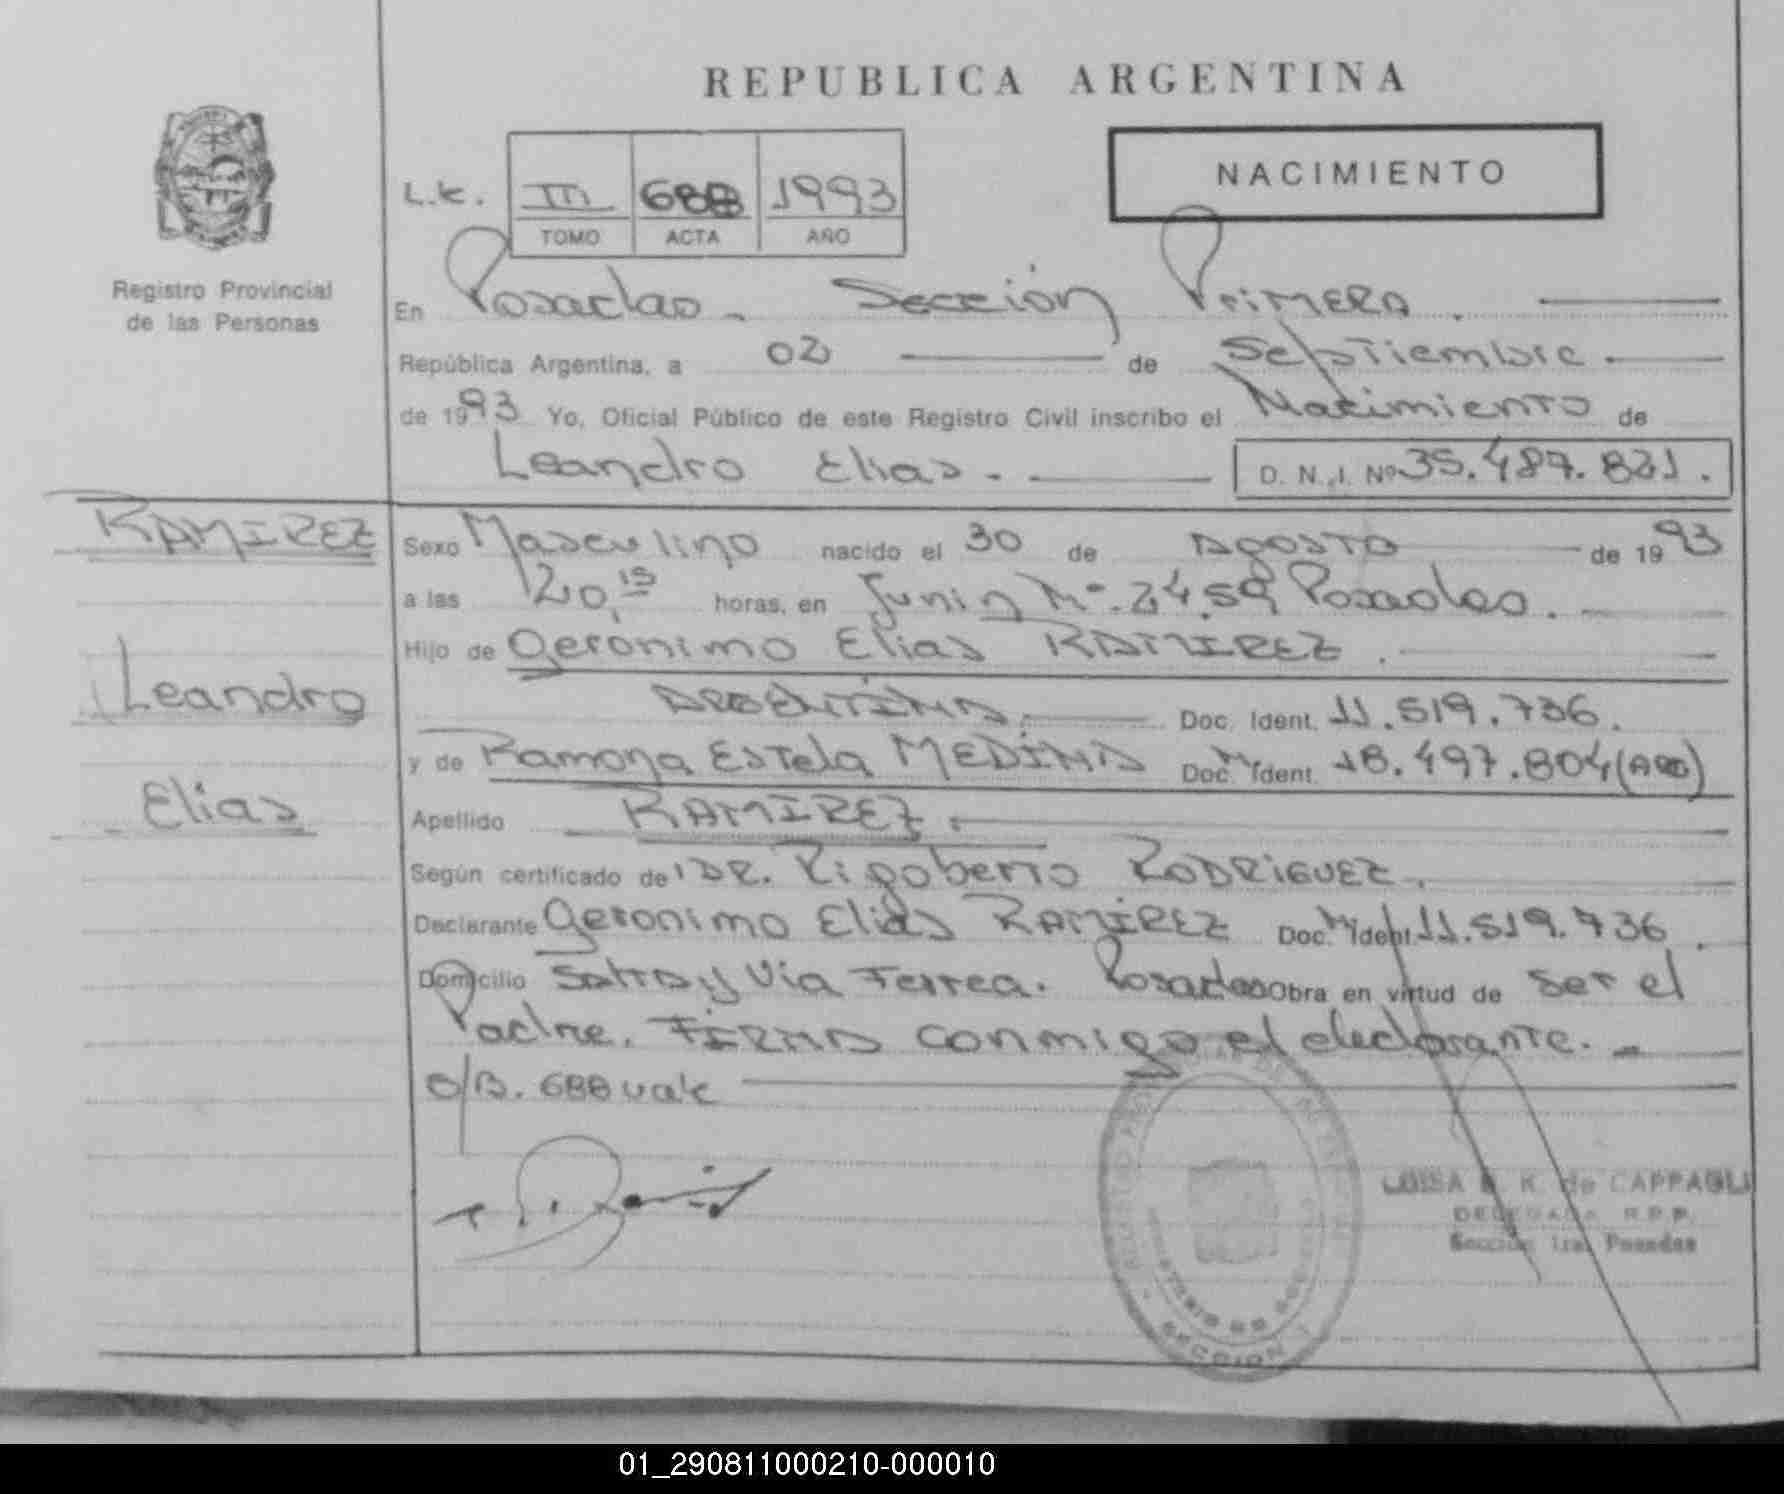 REPUBLICA ARGENTINA
NACIMIENTO
L.K. III 688 1993
TOMO ACTA AÑO
Registro Provincial
de las Personas
En Posadas - Sección Primera.
República Argentina, a 02 de Septiembre.
de 1993 Yo, Oficial Público de este Registro Civil inscribo el Nacimiento de
Leandro Elias. - D. N. I. Nº 35.487.821.
RAMIREZ
Leandro
Elias
Sexo Masculino nacido el 30 de Agosto de 1993
a las 20,15 horas, en Junin Nº. 2459 Posadas.
Hijo de Gerónimo Elias RAMIREZ.
ARGENTINA. Doc. Ident. 11.519.736.
y de Ramona Estela MEDINA Doc. Ident. 18.497.804 (ARG)
Apellido RAMIREZ.
Según certificado de DR. Rigoberto RODRIGUEZ.
Declarante Geronimo Elias RAMIREZ Doc. Ident. 11.519.736.
Domicilio Salta y Via Ferrea. Posadas Obra en virtud de ser el
Padre. FIRMA conmigo el declarante. -
O/B. 688 vale
LUISA K. de CAPPAGLI
DELEGADA R.P.P.
Sección 1ra. Posadas
SECCION
01_290811000210-000010